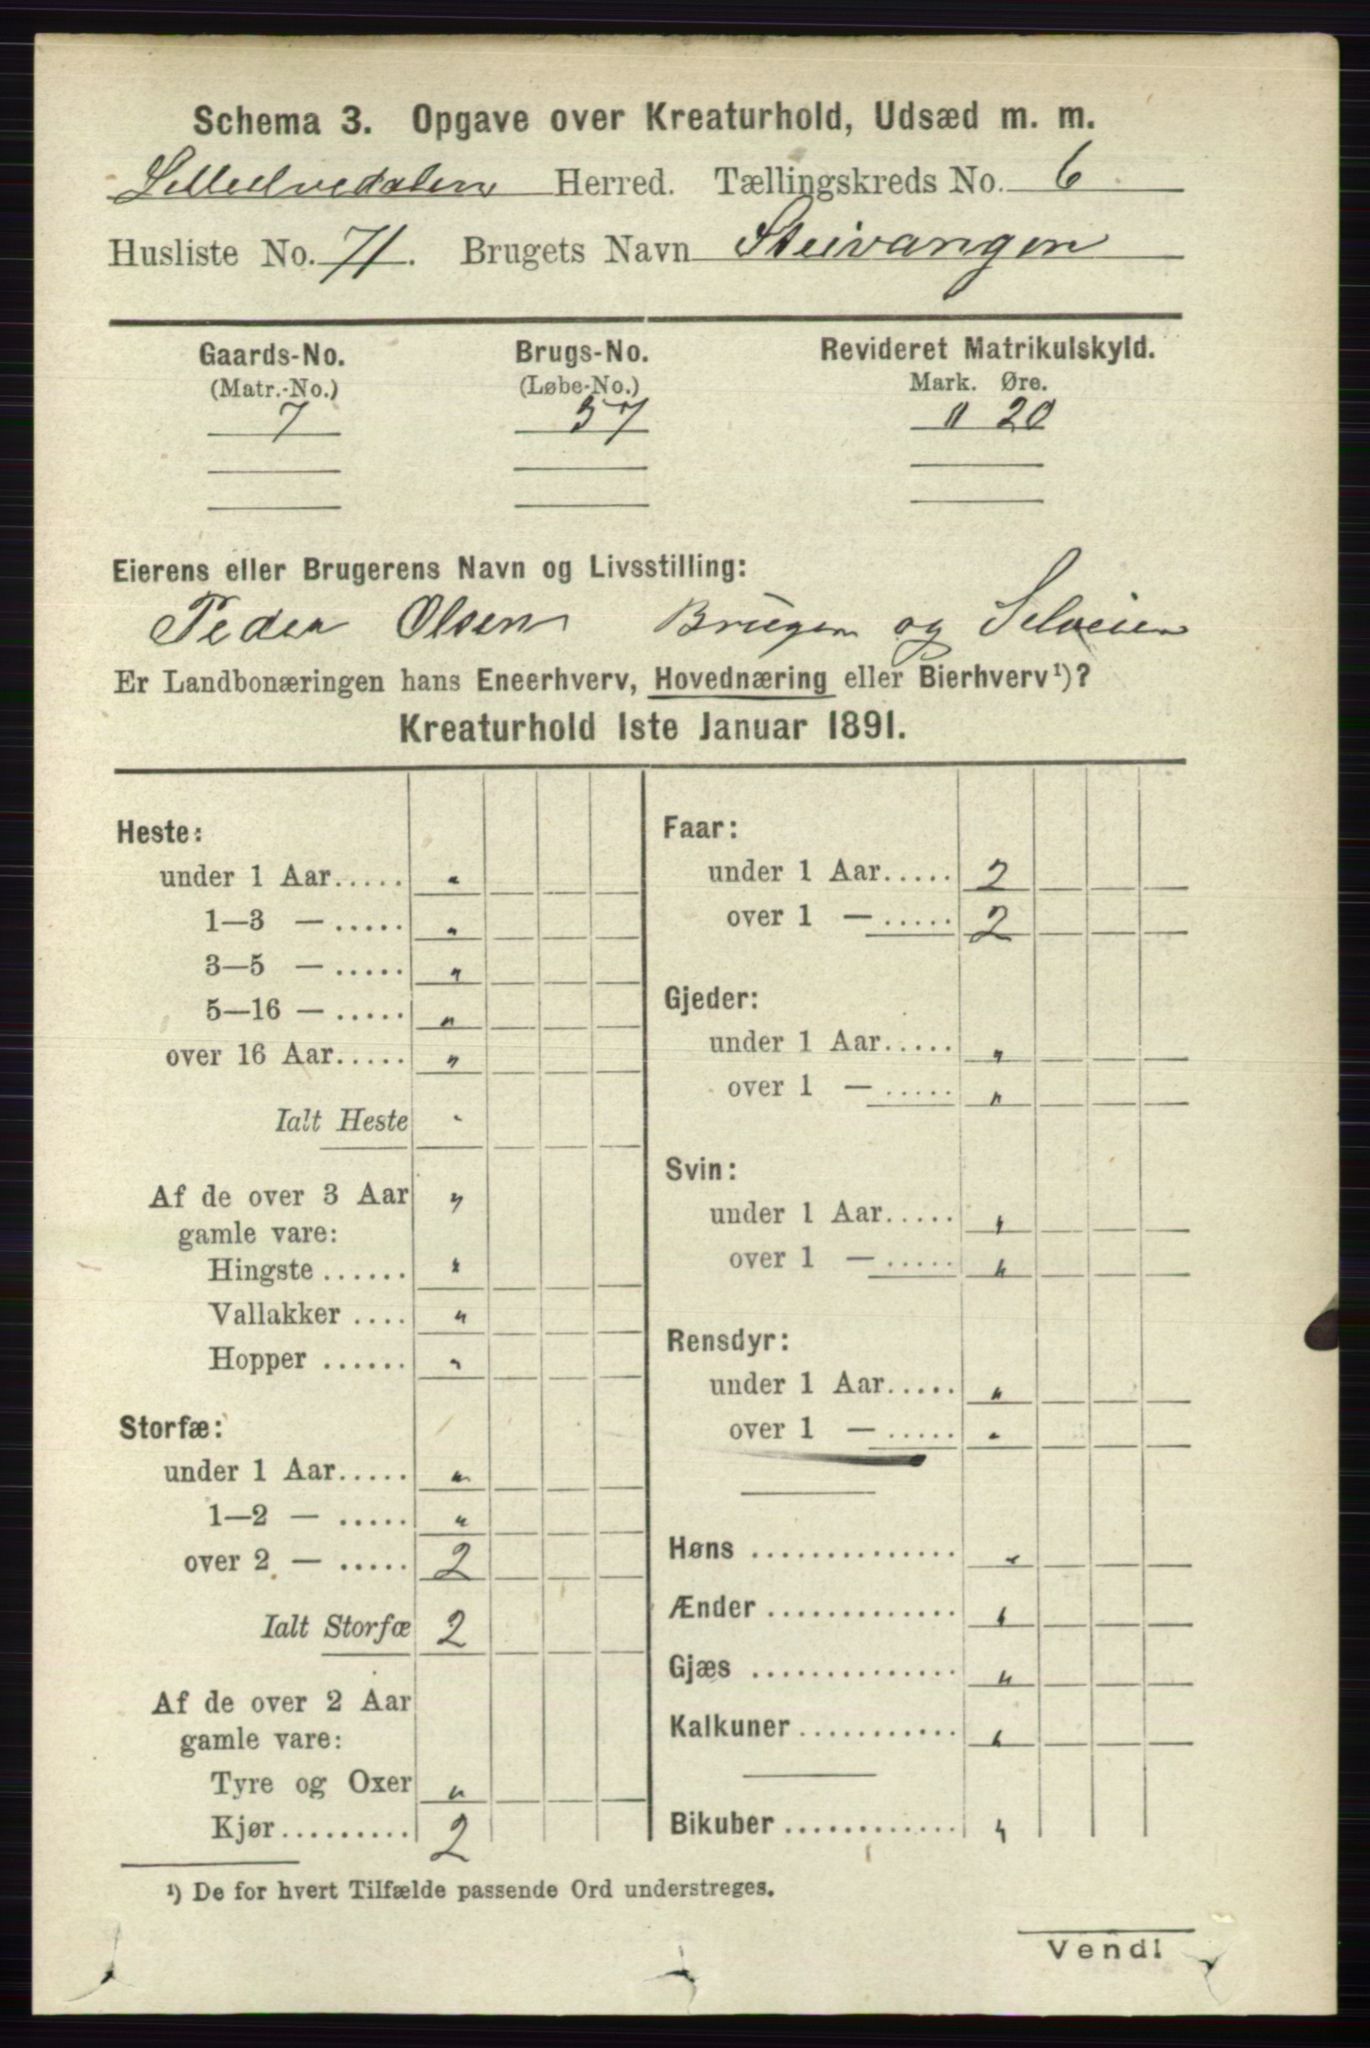 Schema 3. Opgave over Kreaturhold, Udsæd m. m.
Lilleelvedalen Herred. Tællingskreds No. 6
Husliste No. 71. Brugets Navn Steivangen
Gaards-No. Brugs-No. Revideret Matrikulskyld.
(Matr.-No.) (Løbe-No.) Mark. Øre.
7 37 " 20
Eierens eller Brugerens Navn og Livsstilling:
Peder Olsen Bruger og Selveier
Er Landbonæringen hans Eneerhverv, Hovednæring eller Bierhverv¹)?
Kreaturhold 1ste Januar 1891.
Heste:
under 1 Aar..... "
1—3 — ..... "
3—5 — ..... "
5—16 — ..... "
over 16 Aar..... "
Ialt Heste "
Af de over 3 Aar "
gamle vare:
Hingste ...... "
Vallakker .... "
Hopper ...... "
Storfæ:
under 1 Aar..... "
1—2 — ..... "
over 2 — ..... 2
Ialt Storfæ 2
Af de over 2 Aar
gamle vare:
Tyre og Oxer "
Kjør.......... 2
Faar:
under 1 Aar..... 2
over 1 — ..... 2
Gjeder:
under 1 Aar..... "
over 1 — ..... "
Svin:
under 1 Aar..... "
over 1 — ..... "
Rensdyr:
under 1 Aar..... "
over 1 — ..... "
Høns .............. "
Ænder ............. "
Gjæs .............. "
Kalkuner........... "
Bikuber ............ "
¹) De for hvert Tilfælde passende Ord understreges.
Vend!